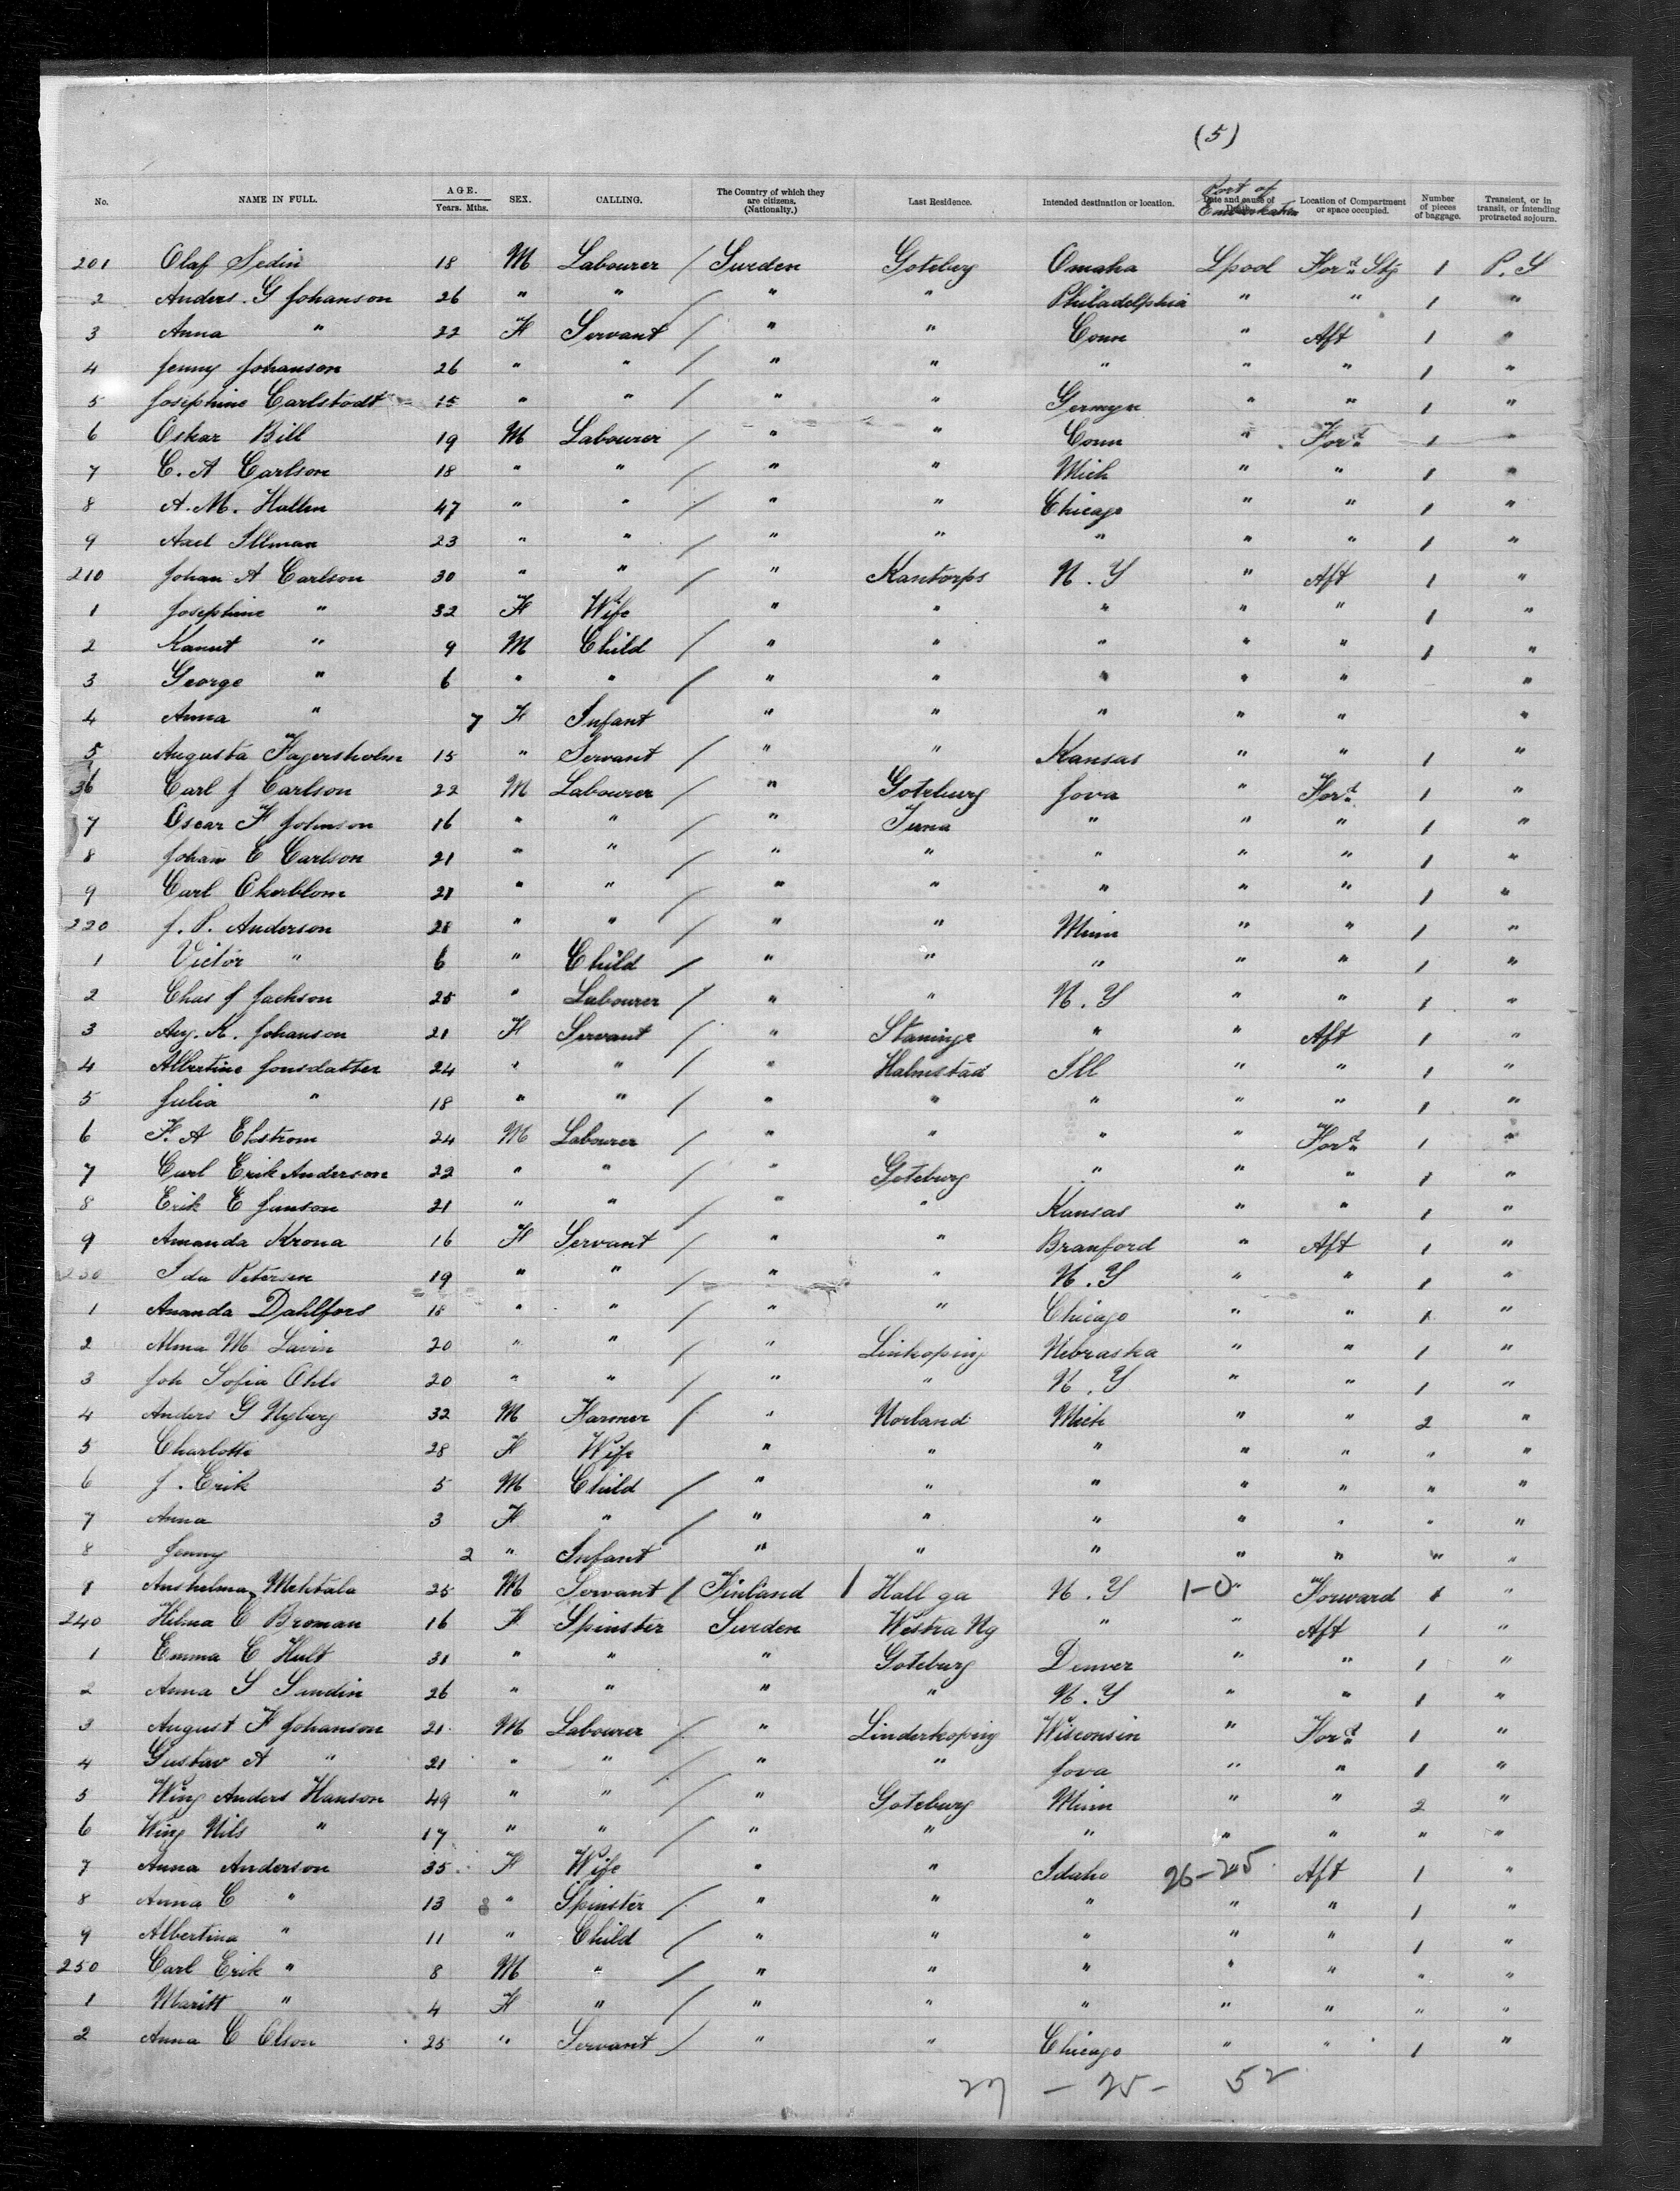 (5)
No. NAME IN FULL. AGE. Years. Mths. SEX. CALLING. The Country of which they are citizens. (Nationality.) Last Residence. Intended destination or location. Date and cause of Death. Port of Embarkation Location of Compartment or space occupied. Number of pieces of baggage. Transient, or in transit, or intending protracted sojourn.
201 Olaf Sedin 18 M Labourer / Sweden Goteburg Omaha Lpool For'd Stg 1 P.S
2 Anders. G Johanson 26 " " / " " Philadelphia " " 1 "
3 Anna " 22 F Servant / " " Conn " Aft 1 "
4 Jenny Johanson 26 " " / " " " " " 1 "
5 Josephine Carlstodt 15 " " / " " Germyn " " 1 "
6 Oskar Bill 19 M Labourer / " " Conn " For'd 1 "
7 C. A Carlson 18 " " / " " Mich " " 1 "
8 A. M. Hallen 47 " " / " " Chicago " " 1 "
9 Axel Illman 23 " " / " " " " " 1 "
210 Johan A Carlson 30 " " / " Kantorps N.Y " Aft 1 "
1 Josephine " 32 F Wife " " " " " 1 "
2 Kanut " 9 M Child / " " " " " 1 "
3 George " 6 " " / " " " " " "
4 Anna " 7 F Infant " " " " " "
5 Augusta Fagersholm 15 " Servant / " " Kansas " " 1 "
6 Carl J Carlson 22 M Labourer / " Goteburg Jova " For'd 1 "
7 Oscar F Johnson 16 " " / " Tuna " " " 1 "
8 Johan E Carlson 21 " " / " " " " " 1 "
9 Carl Okerblom 21 " " / " " " " " 1 "
220 J. P. Anderson 28 " " / " " Minn " " 1 "
1 Victor " 6 " Child / " " " " " 1 "
2 Chas J Jackson 25 " Labourer / " " N.Y " " 1 "
3 Aug. K. Johanson 21 F Servant / " Staninge " " Aft 1 "
4 Albertine Jonsdatter 24 " " / " Halmstad Ill " " 1 "
5 Julia " 18 " " / " " " " " 1 "
6 F. A Ekstrom 24 M Labourer / " " " " For'd 1 "
7 Carl Erik Anderson 22 " " / " Goteburg " " " 1 "
8 Erik E Janson 21 " " / " " Kansas " " 1 "
9 Amanda Krona 16 F Servant / " " Branford " Aft 1 "
230 Ida Petersen 19 " " / " " N.Y " " 1 "
1 Amanda Dahlfors 18 " " / " " Chicago " " 1 "
2 Alma M Lavin 20 " " / " Linkoping Nebraska " " 1 "
3 Joh Sofia Ohls 20 " " / " " N.Y " " 1 "
4 Anders G Nyberg 32 M Farmer / " Norland Mich " " 2 "
5 Charlotte 28 F Wife " " " " " " "
6 J. Erik 5 M Child / " " " " " " "
7 Anna 3 F " / " " " " " " "
8 Jenny 2 " Infant " " " " " " "
9 Anshelma Mehtala 25 M Servant / Finland / Hall ga N.Y 1-0 " Forward 1 "
240 Hilma C Broman 16 F Spinster Sweden Westra Ng " " Aft 1 "
1 Emma C Hult 31 " " " Goteburg Denver " " 1 "
2 Anna S Sandin 26 " " " " N.Y " " 1 "
3 August F Johanson 21 M Labourer / " Linderkoping Wisconsin " For'd 1 "
4 Gustav A " 21 " " / " " Jova " " 1 "
5 Wing Anders Hanson 49 " " / " Goteburg Minn " " 2 "
6 Wing Nils " 17 " " / " " " " " " "
7 Anna Anderson 35 F Wife " " Idaho 26-25 Aft 1 "
8 Anna C " 13 " Spinster / " " " " " 1 "
9 Albertina " 11 " Child / " " " " " 1 "
250 Carl Erik " 8 M " / " " " " " " "
1 Maritt " 4 F " / " " " " " " "
2 Anna C Olson 25 " Servant / " " Chicago " " 1 "
27 - 25 - 52